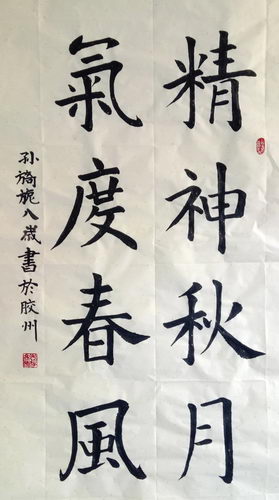 精神秋月
氣度春風
孙旖旎八歲書於胶州